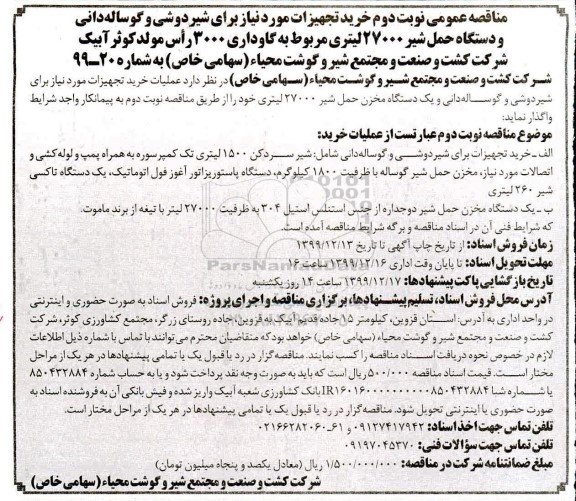 مناقصه عمومی نوبت دوم خرید تجهیزات مورد نیاز برای شیردوشی و گوساله‌دانی
و دستگاه حمل شیر ۲۷۰۰۰ لیتری مربوط به گاوداری ۳۰۰۰ رأس مولد کوثر آبیک
شرکت کشت و صنعت و مجتمع شیر و گوشت محیاء (سهامی خاص) به شماره ۲۰-۹۹
شرکت کشت و صنعت و مجتمع شیر و گوشت محیاء (سهامی خاص) در نظر دارد عملیات خرید تجهیزات مورد نیاز برای
شیردوشی و گوساله‌دانی و یک دستگاه مخزن حمل شیر ۲۷۰۰۰ لیتری خود را از طریق مناقصه نوبت دوم به پیمانکار واجد شرایط
واگذار نماید:
موضوع مناقصه نوبت دوم عبارتست از عملیات خرید:
الف ـ خرید تجهیزات برای شیردوشی و گوساله‌دانی شامل: شیر سردکن ۱۵۰۰ لیتری تک کمپرسوره به همراه پمپ و لوله‌کشی و
اتصالات مورد نیاز، مخزن حمل شیر گوساله با ظرفیت ۱۸۰۰ کیلوگرم، دستگاه پاستوریزاتور آغوز فول اتوماتیک، یک دستگاه تاکسی
شیر ۲۶۰ لیتری
ب ـ یک دستگاه مخزن حمل شیر دوجداره از جنس استنلس استیل ۳۰۴ به ظرفیت ۲۷۰۰۰ لیتر با تیغه از برند ماموت.
که شرایط فنی آن در اسناد مناقصه و برگه شرایط مناقصه آمده است.
زمان فروش اسناد: از تاریخ چاپ آگهی تا تاریخ ۱۳۹۹/۱۲/۱۳
مهلت تحویل اسناد: تا پایان وقت اداری ۱۳۹۹/۱۲/۱۶ ساعت ۱۶
تاریخ بازگشایی پاکت پیشنهادها: ۱۳۹۹/۱۲/۱۷ ساعت ۱۴ روز یکشنبه
آدرس محل فروش اسناد، تسلیم پیشنهادها، برگزاری مناقصه و اجرای پروژه: فروش اسناد به صورت حضوری و اینترنتی
در واحد اداری به آدرس: استان قزوین، کیلومتر ۱۵ جاده قدیم آبیک به قزوین، جاده روستای زرگر، مجتمع کشاورزی کوثر، شرکت
کشت و صنعت و مجتمع شیر و گوشت محیاء (سهامی خاص) خواهد بود که متقاضیان محترم می‌توانند با تماس با شماره ذیل اطلاعات
لازم در خصوص نحوه دریافت اسناد مناقصه را کسب نمایند. مناقصه‌گزار در رد یا قبول یک یا تمامی پیشنهادها در هر یک از مراحل
مختار است. قیمت اسناد مناقصه ۵۰۰/۰۰۰ ریال است که باید به صورت وجه نقد پرداخت شود و یا به حساب شماره ۸۵۰۴۳۲۸۸۴
یا شماره شبا IR۱۶۰۱۶۰۰۰۰۰۰۰۰۰۰۰۸۵۰۴۳۲۸۸۴ بانک کشاورزی شعبه آبیک واریز شده و فیش بانکی آن به فروشنده اسناد به
صورت حضوری یا اینترنتی تحویل شود. مناقصه‌گزار در رد یا قبول یک یا تمامی پیشنهادها در هر یک از مراحل مختار است.
تلفن تماس جهت اخذ اسناد: ۰۹۱۲۷۴۱۷۹۴۲ و ۶۱-۰۲۱۶۶۲۸۲۰۶۰
تلفن تماس جهت سؤالات فنی: ۰۹۱۹۷۰۴۵۳۷۰
مبلغ ضمانتنامه شرکت در مناقصه: ۱/۵۰۰/۰۰۰/۰۰۰ ریال (معادل یکصد و پنجاه میلیون تومان)
شرکت کشت و صنعت و مجتمع شیر و گوشت محیاء (سهامی خاص)